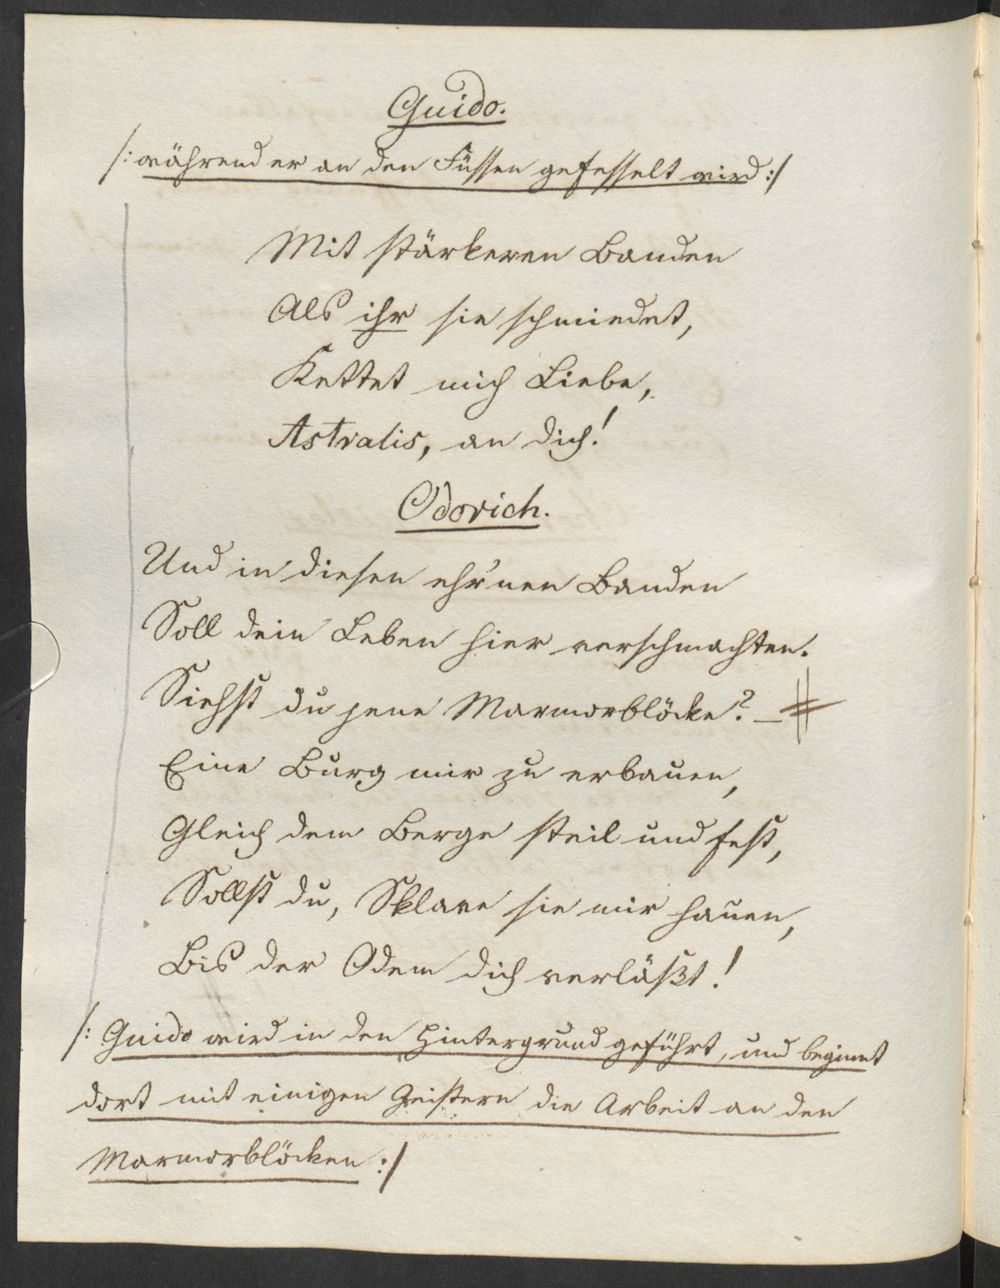 Guido.
/: während er an den Füssen gefesselt wird :/
Mit stärkeren Banden
Als ihr sie schmiedet,
Kettet mich Liebe,
Astralis, an dich!
Odorich.
Und in diesen ehr'nen Banden
Soll dein Leben hier verschmachten.
Siehst du jene Marmorblöcke? — #
Eine Burg mir zu erbauen,
Gleich dem Berge steil und fest,
Sollst du, Sklave sie mir hauen,
Bis der Odem dich verläßt!
/: Guido wird in den Hintergrund geführt, und beginnt
dort mit einigen Geistern die Arbeit an den
Marmorblöcken :/